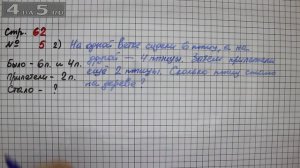 4 на 5.ru
Стр. 62
№ 5 2) На одной ветке сидели 6 птиц, а на
другой — 4 птицы. Затем прилетели
ещё 2 птицы. Сколько птиц стало
на дереве?
Было – 6п. и 4п.
Прилетели – 2п.
Стало – ?